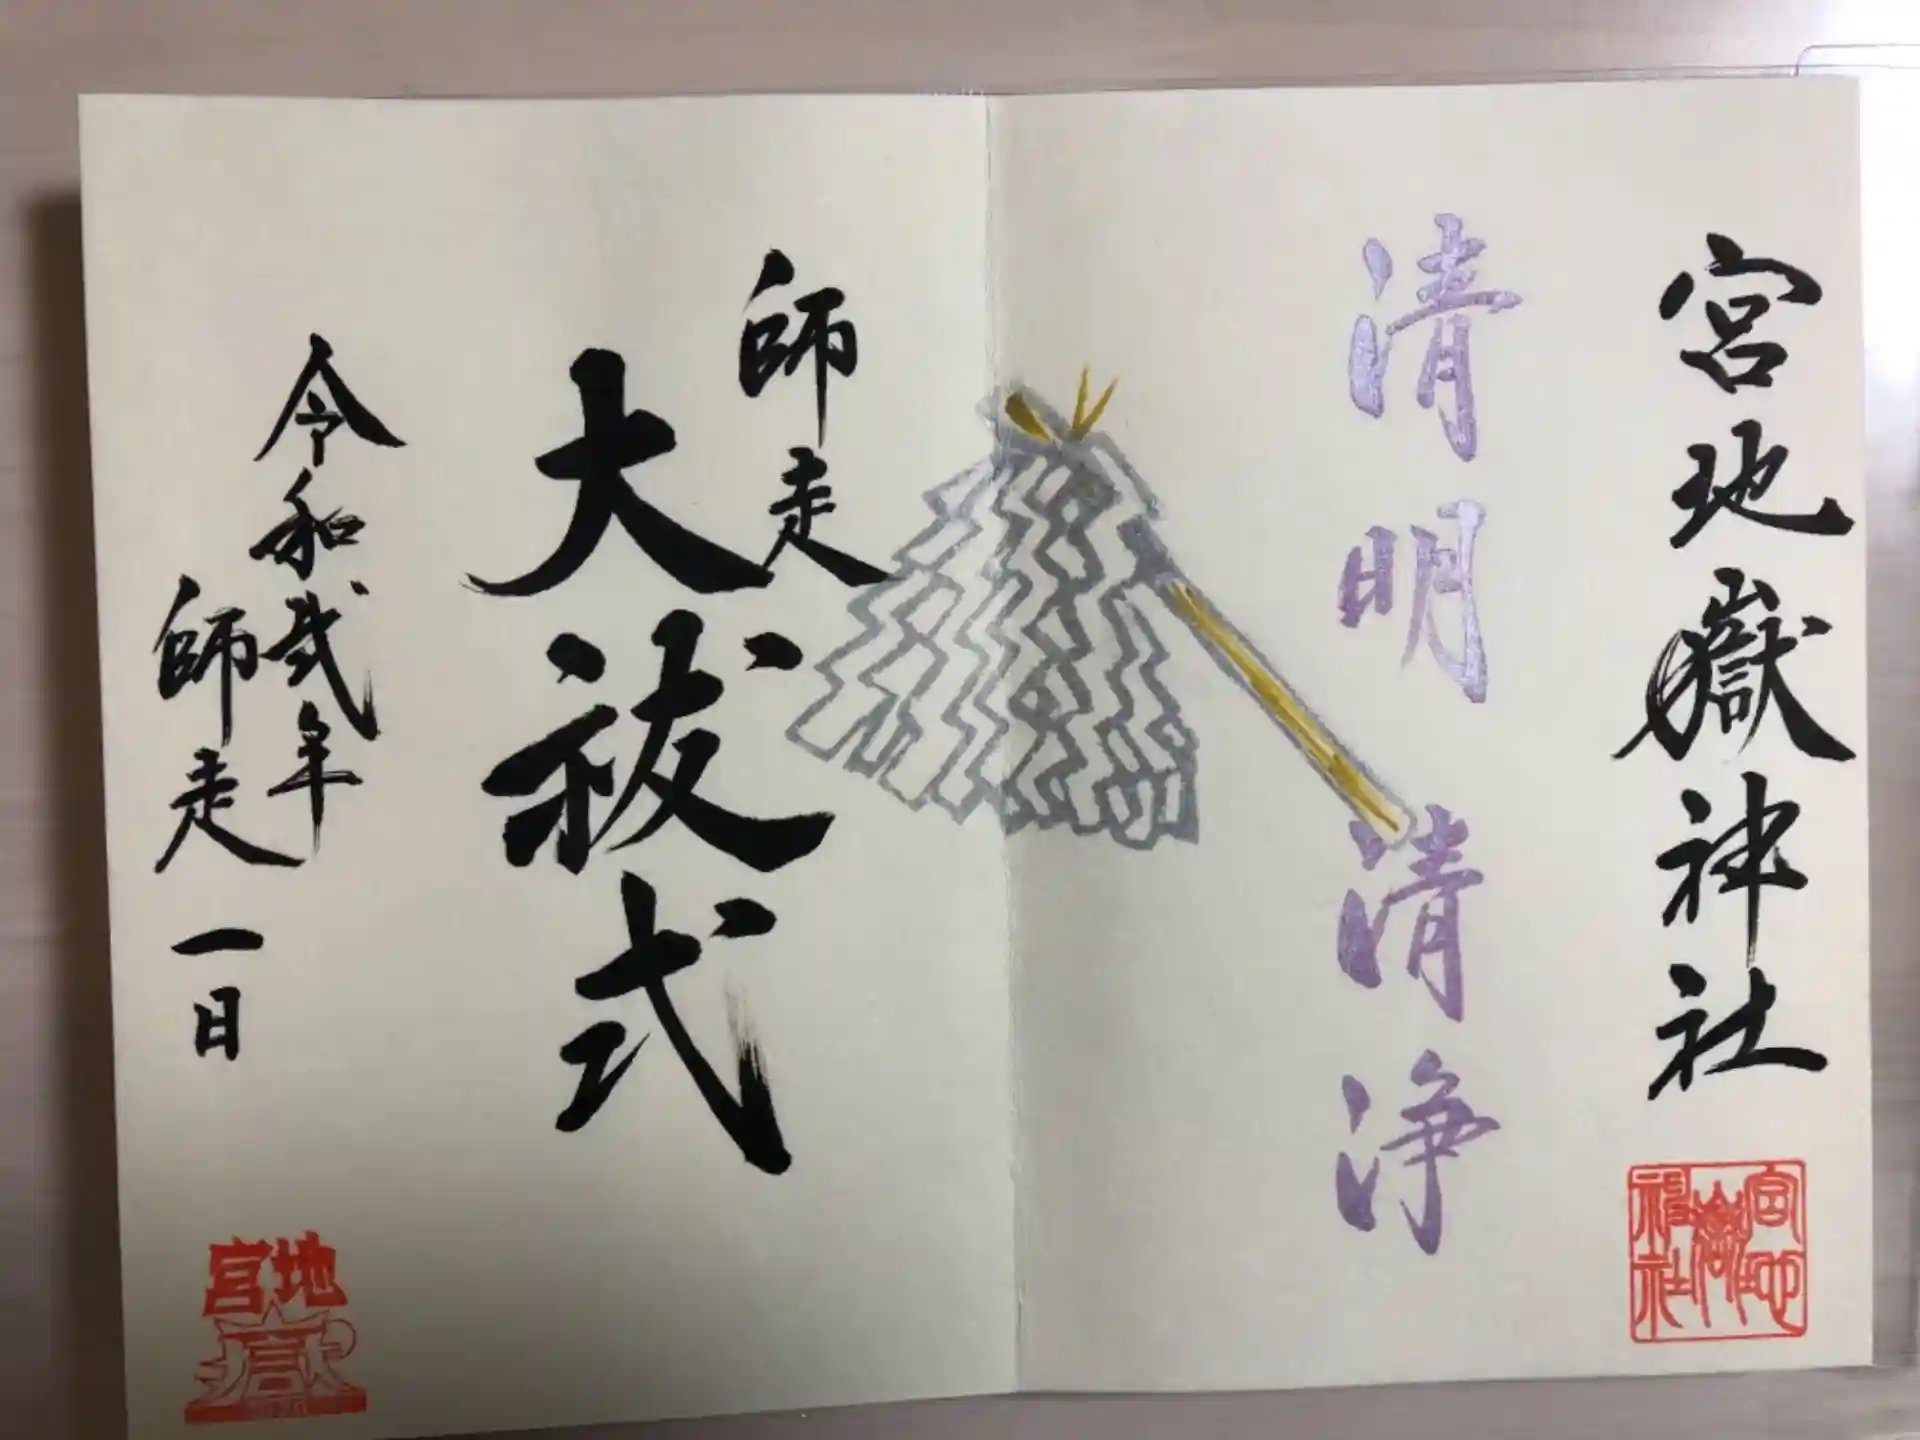 宮地嶽神社
清明清浄
師走
大祓式
令和弐年
師走一日
宮地嶽神社
宮地
嶽
2020